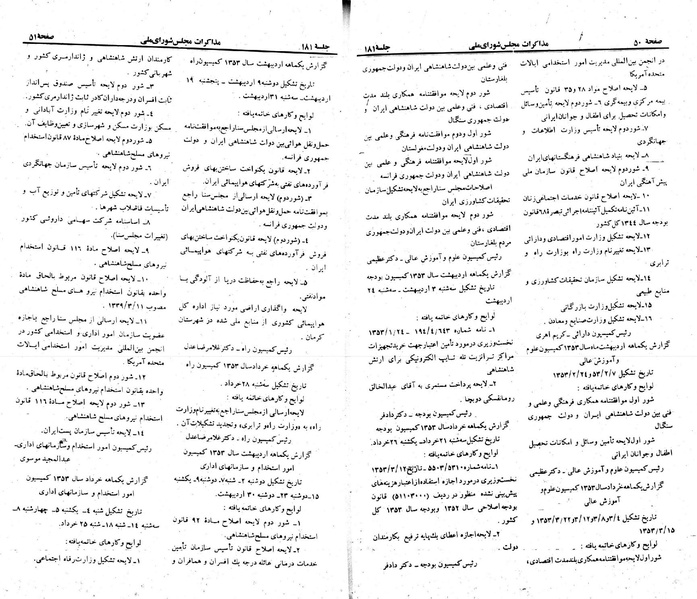 صفحهٔ ۵۰
مذاکرات مجلس شورای ملی
جلسهٔ ۱۸۱
در انجمن بین‌المللی مدیریت امور استخدامی ایالات
متحده آمریکا
۵ـ لایحه اصلاح مواد ۲۸ و ۳۵ قانون تأسیس
بیمه مرکزی و بیمه‌گری ۶ـ شور دوم لایحه تأمین وسائل
و امکانات تحصیل برای اطفال و جوانان ایرانی
۷ـ شور دوم لایحه تأسیس وزارت اطلاعات و
جهانگردی
۸ـ لایحه بنیاد شاهنشاهی فرهنگستانهای ایران
۹ـ شور دوم لایحه اصلاح قانون سازمان ملی
پیش‌آهنگی ایران
۱۰ـ لایحه اصلاح قانون خدمات اجتماعی زنان
۱۱ـ آئین‌نامه تکمیلی آئیننامه اجرائی تبصره ۶۸ قانون
بودجه سال ۱۳۴۴ کل کشور
۱۲ـ لایحه تشکیل وزارت امور اقتصادی و دارائی
۱۳ـ لایحه تغییر نام وزارت راه بوزارت راه و
ترابری
۱۴ـ لایحه تشکیل سازمان تحقیقات کشاورزی و
منابع طبیعی
۱۵ـ لایحه وزارت بازرگانی
۱۶ـ لایحه تشکیل وزارت صنایع و معادن.
رئیس کمیسیون دارائی ـ کریم اهری
گزارش یکماهه اردیبهشت ماه سال ۱۳۵۳ کمیسیون علوم
و آموزش عالی
تاریخ تشکیل ۵۳/۲/۷ و ۱۳۵۳/۲/۲۴
لوایح و کارهای خاتمه یافته:
شور اول موافقتنامه همکاری فرهنگی و علمی و
فنی بین دولت شاهنشاهی ایران و دولت جمهوری
سنگال
شور اول لایحه تأمین وسائل و امکانات تحصیل
اطفال و جوانان ایرانی
رئیس کمیسیون علوم و آموزش عالی ـ دکتر عظیمی
گزارش یکماهه خرداد سال ۱۳۵۳ کمیسیون علوم و
آموزش عالی
تاریخ تشکیل ۳/۴ و ۳/۸ و ۳/۱۲ و ۱۳۵۳/۳/۲۲ و
۱۳۵۳/۳/۱۵
لوایح و کارهای خاتمه یافته:
شور اول لایحه موافقتنامه همکاری بلند مدت اقتصادی،
فنی و علمی بین دولت شاهنشاهی ایران و دولت جمهوری
بلغارستان
شور دوم لایحه موافقتنامه همکاری بلند مدت
اقتصادی، فنی و علمی بین دولت شاهنشاهی ایران و
دولت جمهوری سنگال
شور اول و دوم موافقتنامه فرهنگی و علمی بین
دولت شاهنشاهی ایران و دولت مغولستان
شور اول لایحه موافقتنامه فرهنگی و علمی بین
دولت شاهنشاهی ایران و دولت جمهوری فرانسه
اصلاحات مجلس سنا راجع به لایحه تشکیل سازمان
تحقیقات کشاورزی ایران
شور دوم لایحه موافقتنامه همکاری بلند مدت
اقتصادی، فنی و علمی بین دولت ایران و دولت جمهوری
مردم بلغارستان
رئیس کمیسیون علوم و آموزش عالی ـ دکتر عظیمی
گزارش یکماهه اردیبهشت سال ۱۳۵۳ کمیسیون بودجه
تاریخ تشکیل سه‌شنبه ۳ اردیبهشت ـ سه‌شنبه ۲۴
اردیبهشت
لوایح و کارهای خاتمه یافته:
نخست‌وزیری در مورد تأمین اعتبار جهت خرید تجهیزات
مراکز تمرکزیت تله تایپ الکترونیکی برای ارتش
شاهنشاهی
۲ـ لایحه پرداخت مستمری به آقای عبدالخالق
رئیس کمیسیون بودجه ـ دکتر دادفر
گزارش یکماهه خرداد سال ۱۳۵۳ کمیسیون بودجه
تاریخ تشکیل سه‌شنبه ۲۱ خرداد ـ یکشنبه ۲۶ خرداد.
لوایح و کارهای خاتمه یافته:
۱ـ نامه شماره ۵۵۰۳/۵۳۱ ـ تاریخ ۱۳۵۳/۳/۱۲
نخست‌وزیری در مورد اجازه استفاده از اعتبار هزینه‌های
پیش‌بینی نشده منظور در ردیف (۵۱۱۰۳۰۰۰)
قانون متمم بودجه سال ۱۳۵۲ و بودجه سال ۱۳۵۳ کل
کشور.
۲ـ لایحه اجازه اعطای یک پایه ترفیع بکارمندان
دولت.
رئیس کمیسیون بودجه ـ دکتر دادفر
جلسهٔ ۱۸۱
مذاکرات مجلس شورای ملی
صفحهٔ ۵۱
گزارش یکماهه اردیبهشت سال ۱۳۵۳ کمیسیون راه
تاریخ تشکیل دوشنبه ۹ اردیبهشت ـ پنجشنبه ۱۹
اردیبهشت ـ سه‌شنبه ۳۱ اردیبهشت.
لوایح و کارهای خاتمه یافته:
۱ـ لایحه ارسالی از مجلس سنا راجع به موافقت‌نامه
حمل و نقل هوائی بین دولت شاهنشاهی ایران و دولت
جمهوری فرانسه.
۲ـ لایحه قانون یکنواخت ساختن بهای فروش
فرآورده‌های نفتی به شرکتهای هواپیمائی ایران.
۳ـ (شور دوم) لایحه ارسالی از مجلس سنا راجع
بموافقت‌نامه حمل و نقل هوائی بین دولت شاهنشاهی ایران
و دولت جمهوری فرانسه.
۴ـ (شور دوم) لایحه قانون یکنواخت ساختن بهای
فروش فرآورده‌های نفتی به شرکتهای هواپیمائی
ایران.
۵ـ لایحه راجع به حفاظت دریا از آلودگی با
مواد نفتی.
لایحه واگذاری اراضی مورد نیاز اداره کل
هواپیمائی کشوری از منابع ملی شده در شهرستان
کرمان.
رئیس کمیسیون راه ـ دکتر غلامرضا عدل
گزارش یکماهه خرداد سال ۱۳۵۳ کمیسیون راه
تاریخ تشکیل سه‌شنبه ۲۸ خرداد.
لوایح و کارهای خاتمه یافته:
لایحه ارسالی از مجلس سنا راجع به تغییر نام وزارت
راه به (وزارت راه و ترابری) و تجدید تشکیلات آن.
رئیس کمیسیون راه ـ دکتر غلامرضا عدل
گزارش یکماهه اردیبهشت سال ۱۳۵۳ کمیسیون
امور استخدام و سازمانهای اداری
تاریخ تشکیل دوشنبه ۲ـ شنبه ۷، دوشنبه ۹، یکشنبه
۱۵ـ دوشنبه ۲۳ـ دوشنبه ۳۰ اردیبهشت.
لوایح و کارهای خاتمه یافته:
۱ـ شور دوم لایحه اصلاح مادهٔ ۹۲ قانون
استخدام نیروهای مسلح شاهنشاهی.
۲ـ لایحه اصلاح قانون تأسیس سازمان تأمین
خدمات درمانی عائله درجه یک افسران و همافران و
کارمندان ارتش شاهنشاهی و ژاندارمری کشور و
شهربانی کشور.
۳ـ شور دوم لایحه تأسیس صندوق پس‌انداز
ثابت افسران و درجه‌داران کادر ثابت ژاندارمری کشور.
۴ـ شور دوم لایحه تغییر نام وزارت آبادانی و
مسکن بوزارت مسکن و شهرسازی و تعیین وظایف آن.
۵ـ شور دوم لایحه اصلاح مادهٔ ۸۷ قانون استخدام
نیروهای مسلح شاهنشاهی.
۶ـ شور دوم لایحه تأسیس سازمان جهانگردی
ایران.
۷ـ لایحه تشکیل شرکتهای تأمین و توزیع آب و
تأسیسات فاضلاب شهرها.
۸ـ اساسنامه شرکت سهامی داروئی کشور
(تغییرات مجلس سنا).
۹ـ لایحه اصلاح مادهٔ ۱۱۶ قانون استخدام
نیروهای مسلح شاهنشاهی.
۱۰ـ لایحه اصلاح قانون مربوط بالحاق مادهٔ
واحده بقانون استخدام نیروهای مسلح شاهنشاهی
مصوب ۱۳۳۹/۳/۱۱
۱۱ـ لایحه ارسالی از مجلس سنا راجع باجازه
عضویت سازمان امور اداری و استخدامی کشور در
انجمن بین‌المللی مدیریت امور استخدامی ایالات
متحده آمریکا
۱۲ـ شور دوم اصلاح قانون مربوط بالحاق مادهٔ
واحده بقانون استخدام نیروهای مسلح شاهنشاهی.
۱۳ـ شور دوم لایحه اصلاح مادهٔ ۱۱۶ قانون
استخدام نیروهای مسلح شاهنشاهی.
۱۴ـ لایحه تأسیس سازمان پست ایران.
رئیس کمیسیون امور استخدام و سازمانهای اداری ـ
عبدالمجید موسوی
گزارش یکماهه خرداد سال ۱۳۵۳ کمیسیون
امور استخدام و سازمانهای اداری
تاریخ تشکیل شنبه ۴ـ یکشنبه ۵ـ چهارشنبه ۸ـ
سه‌شنبه ۱۴ـ شنبه ۱۸ـ شنبه ۲۵ خرداد.
لوایح و کارهای خاتمه یافته:
۱ـ لایحه تشکیل وزارت رفاه اجتماعی.